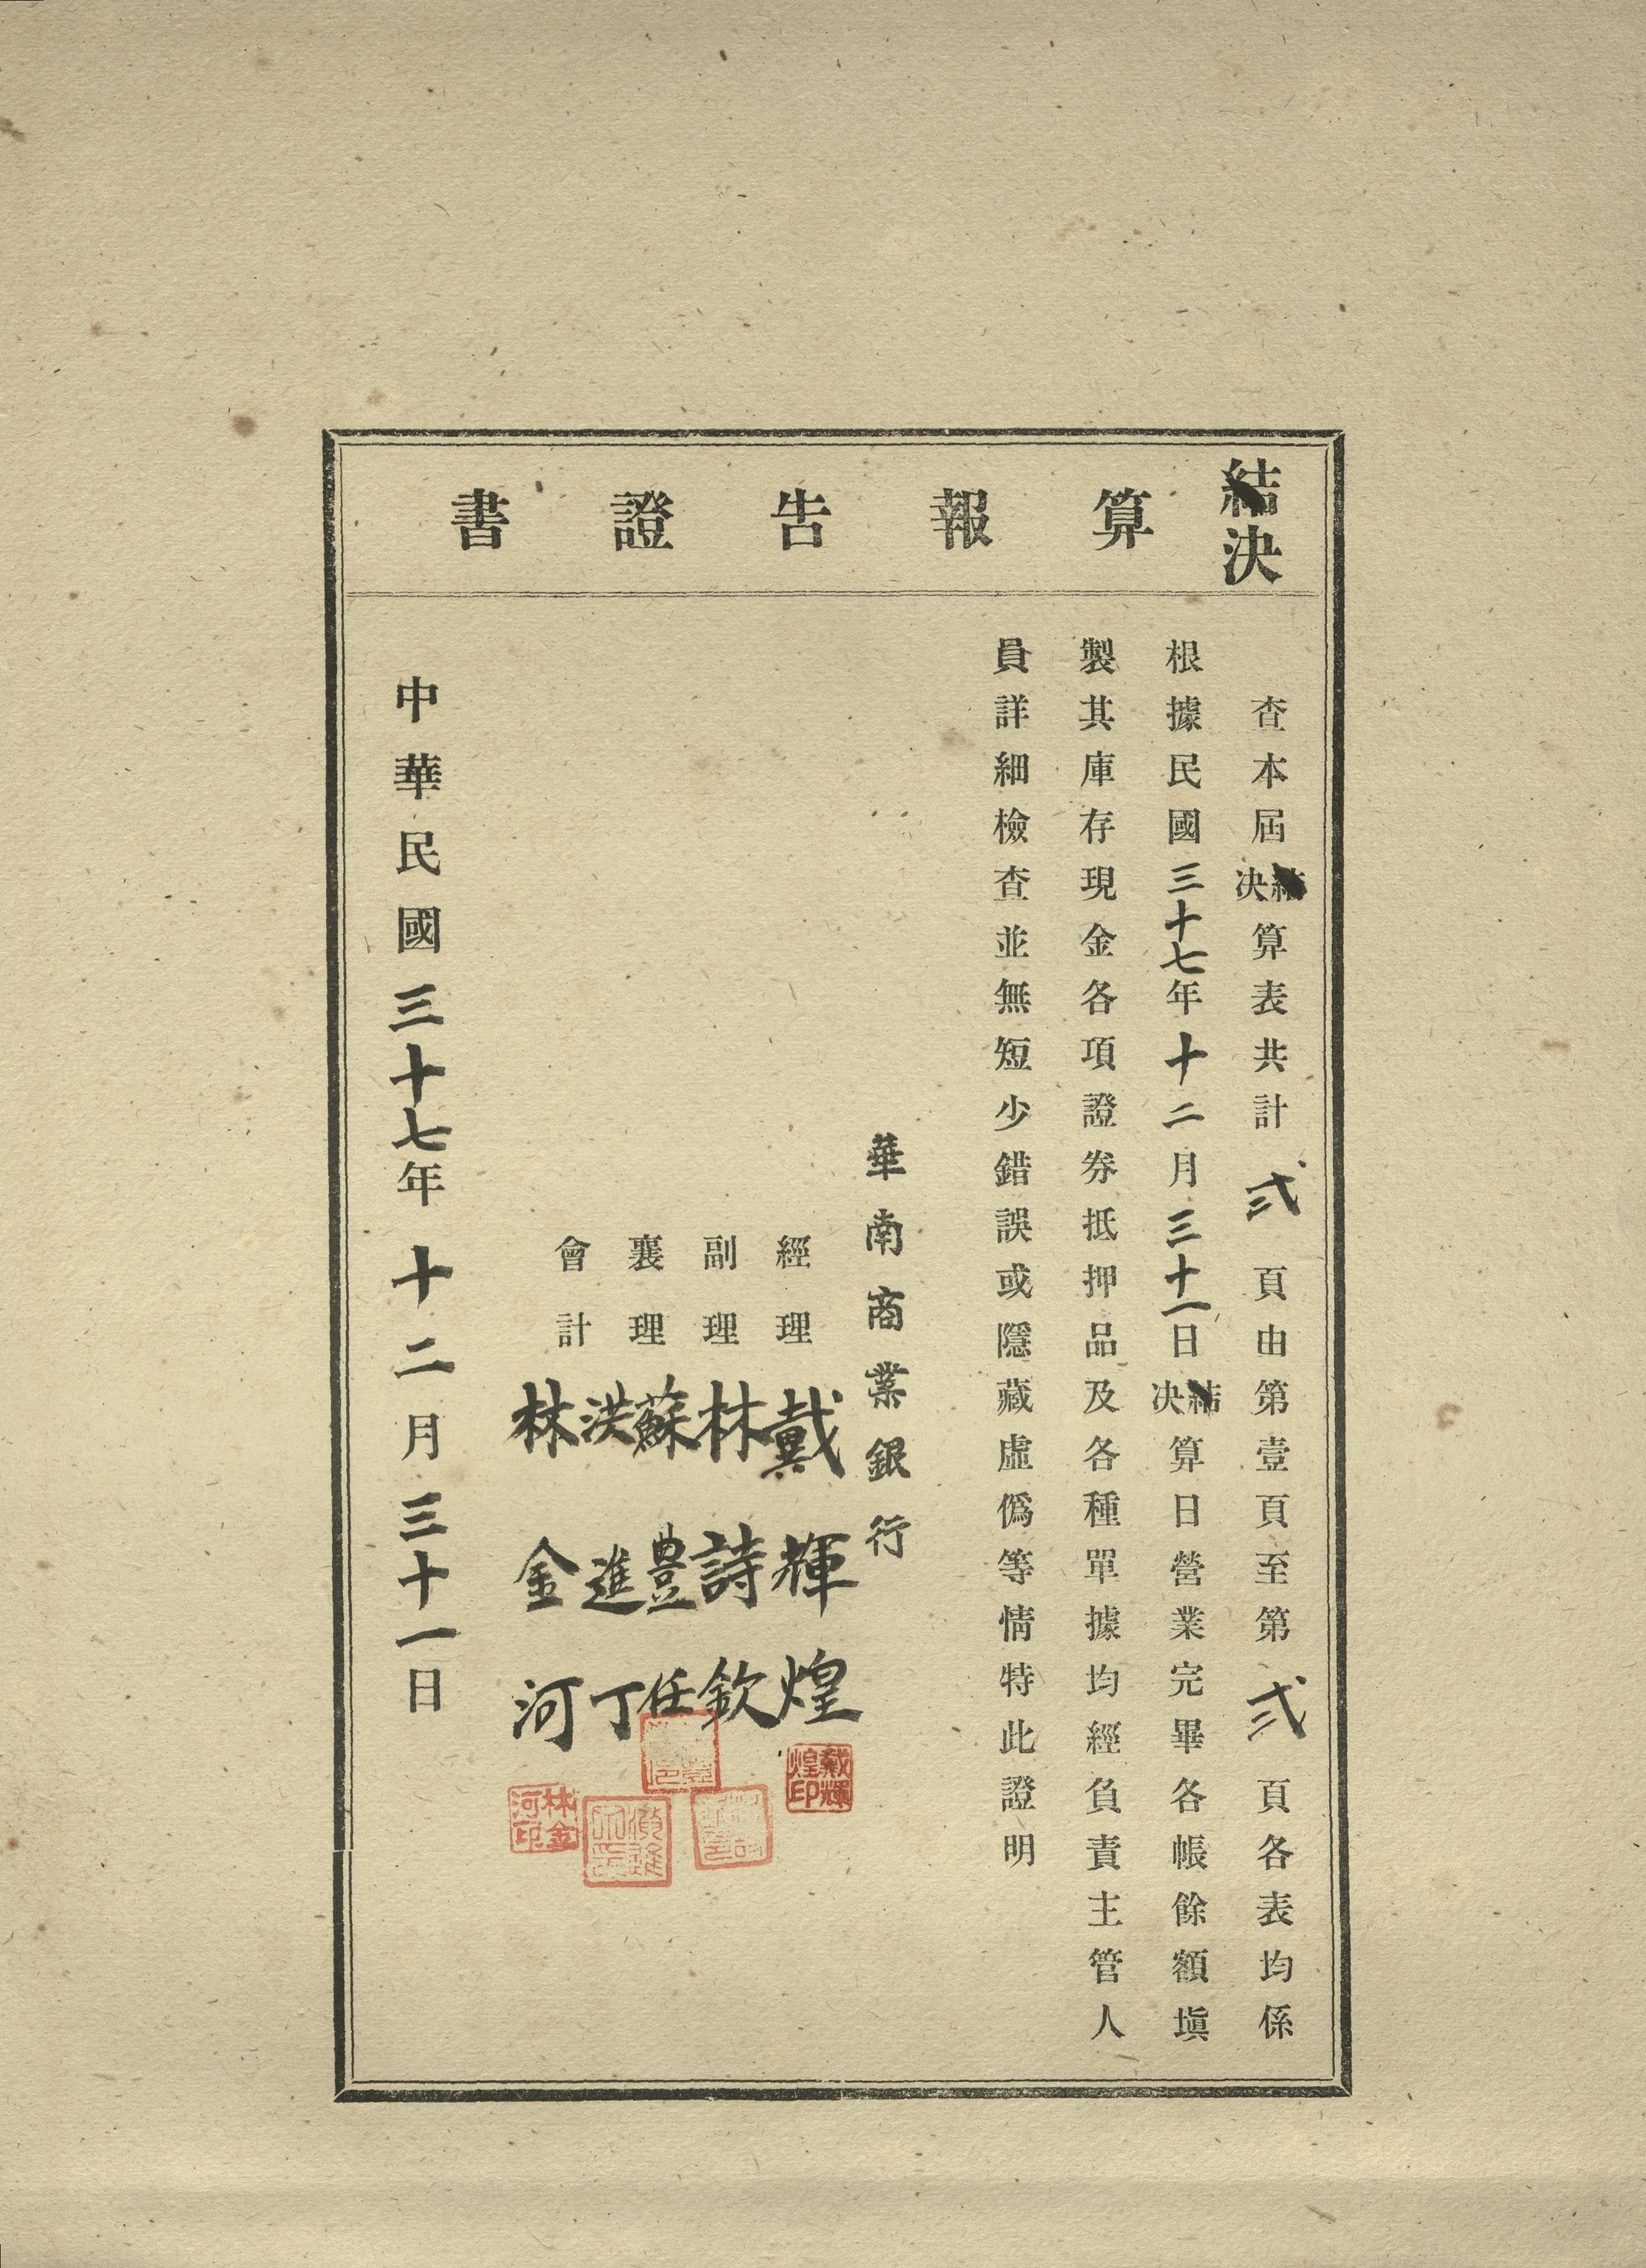 結決算報告證書
查本屆結決算表共計弍頁由第壹頁至第弍頁各表均係
根據民國三十七年十二月三十一日結決算日營業完畢各帳餘額塡
製其庫存現金各項證券抵押品及各種單據均經負責主管人
員詳細檢查並無短少錯誤或隱藏虛僞等情特此證明
華南商業銀行
經理 戴輝煌
副理 林詩欽
襄理 蘇豊任
洪進丁
會計 林金河
戴輝煌印
林金河印
中華民國三十七年十二月三十一日